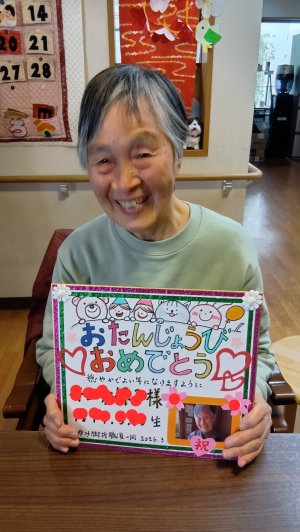 7
14
20 21
27 28
おたんじょうび
おめでとう
穏やかでよい年になりますように
様
生
職員一同 2026.3
祝